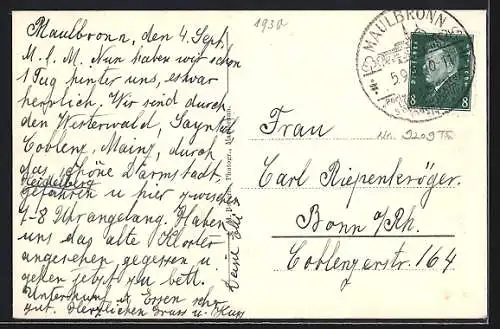 Maulbronn, den 4. Sept.
M. l. M. Nun haben wir schon
1 Tag hinter uns, es war
herrlich. Wir sind durch
den Westerwald, Sayntal
Coblenz, Mainz, durch
das schöne Darmstadt,
Heidelberg
gefahren u hier zwischen
7-8 Uhr angelang. Haben
uns das alte Kloster
angesehen gegessen u
gehen jetzt zu bett.
Unterkunft u. Essen sehr
gut. Herzlichen Gruss u. Kuss
Deine Elli
1930
MAULBRONN
5.9.
8 8
Frau
Carl Riepenkröger.
Bonn a/Rh.
Coblenzerstr. 164